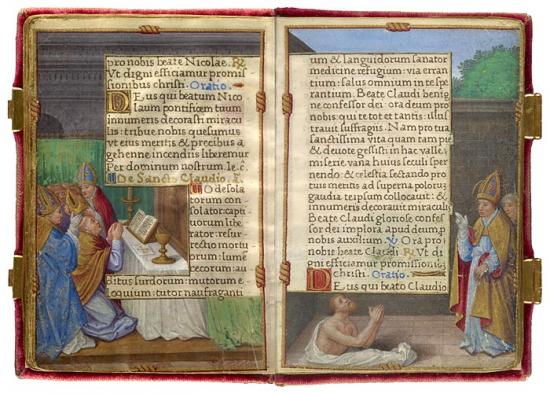 pro nobis beate Nicolae. R
Vt digni efficiamur promis
sionibus christi. Oratio.
Deus qui beatum Nico
laum pontificem tuum
innumeris decorasti miracu
lis: tribue nobis quesumus
vt eius meritis & precibus a
gehenne incendiis liberemur
Per dominum nostrum. ie. c.
De Sancto Claudio. A.
O desola
torum con
solator: capti
uorum libe
rator: resur
rectio mortu
orum: lume
cecorum: au
ditus surdorum: mutorum e
loquium: tutor naufraganti
um & languidorum sanator
medicine refugium: via erran
tium: salus omnium in te spe
rantium. Beate Claudi benig
ne confessor dei: ora deum pro
nobis: qui te tot et tantis: illus
trauit suffragiis. Nam pro tua
sanctissima vita quam tam pie
& deuote gessisti in hac valle
miserie vana huius seculi sper
nendo: & celestia sectando pro
tuis meritis ad superna poloru
gaudia: te ipsum collocauit: &
innumeris decorauit miraculis
Beate Claudi gloriose confes
sor dei implora apud deum,
nobis auxilium. V Ora pro
nobis beate Claudi. R Vt di
gni efficiamur promissionib,
christi. Oratio.
Deus qui beato Claudio